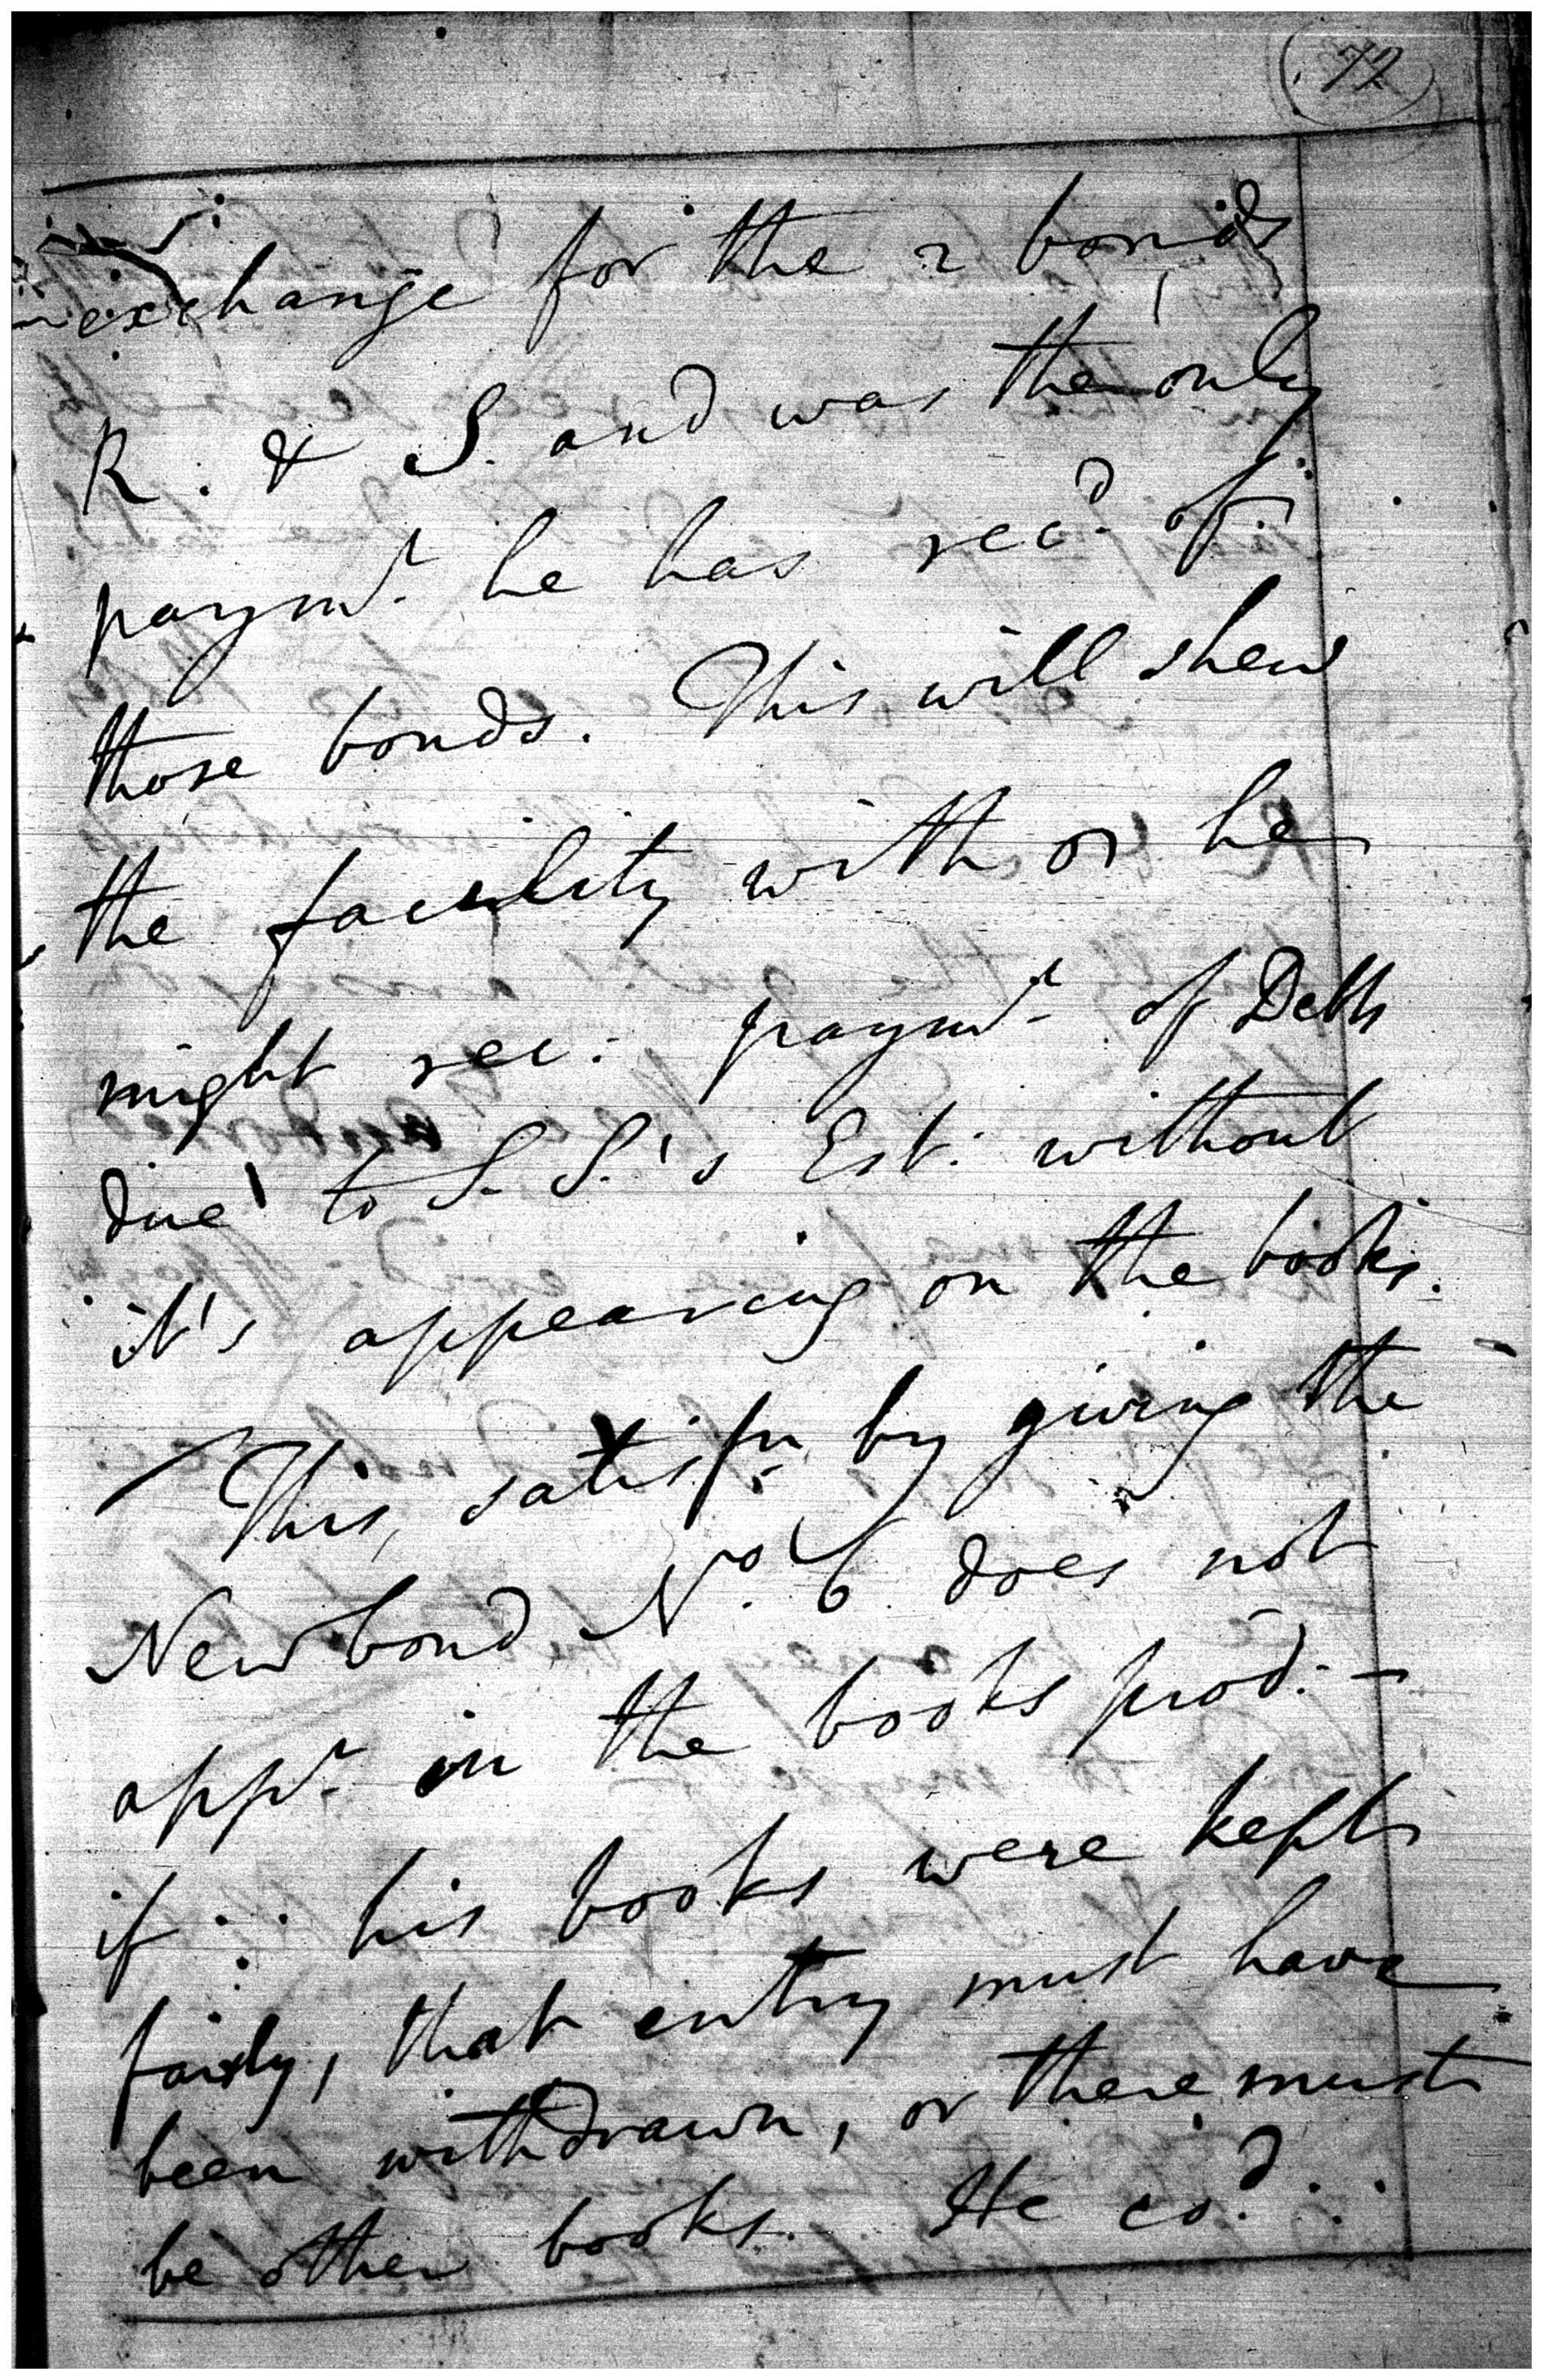 (72)
exchange for the 2 bonds
R. & S. and was the only
paymt. he has recd. of
those bonds. This will shew
the facility with or he
might rec: paymt. of Debts
due to S. S.'s Est: without
it's appearing on the books.
This, satisfn. by giving the
New bond No. 6 does not
appr. in the books prod. -
if ∴ his books were kept
fairly, that entry must have
been withdrawn, or there must
be other books. He cod. . .